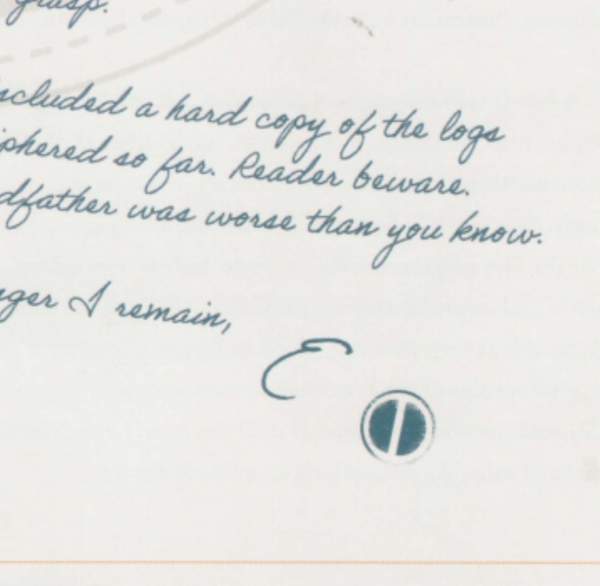 grasp.
ncluded a hard copy of the logs
iphered so far. Reader beware.
dfather was worse than you know.
nger I remain,
E